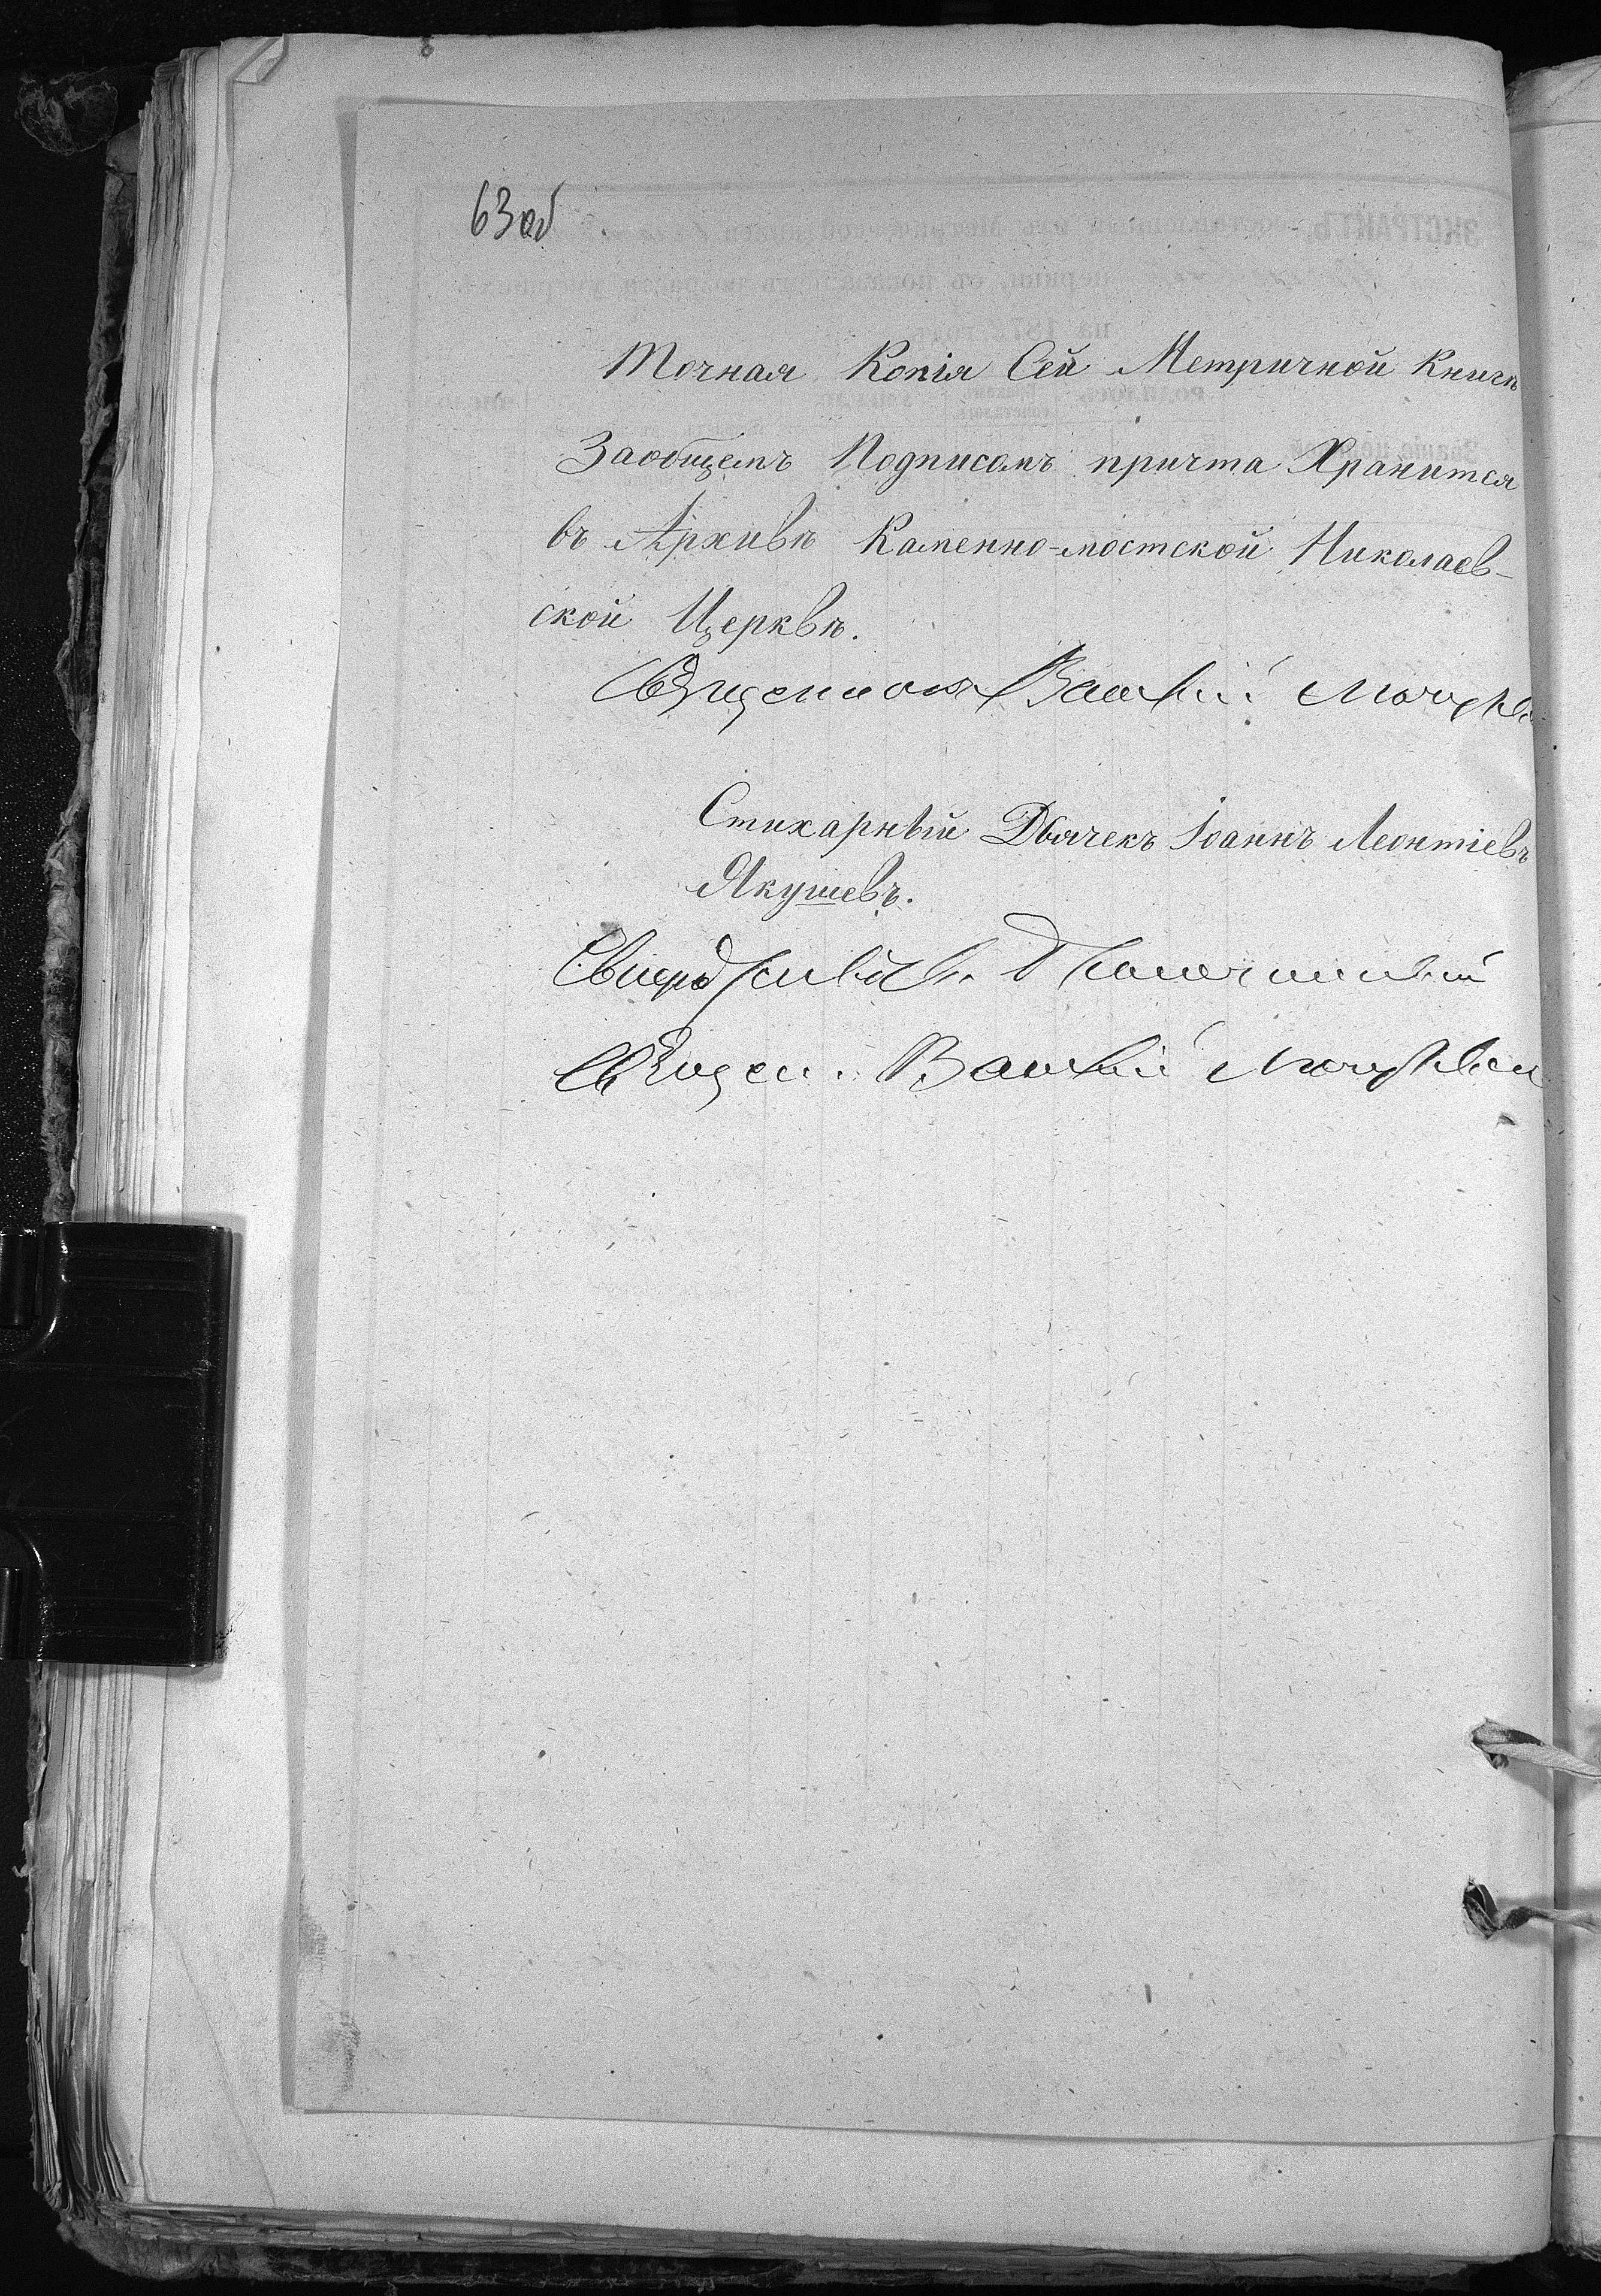 63об
Точная Копія Сей Метричной Книгѣ
Заобщемъ Подписомъ причта Хранится
въ Архивѣ Каменно-мостской Николаев-
ской Церквѣ.
Священникъ Василій
Стихарный Дьячекъ Іоаннъ Леонтіевъ
Якушевъ.
Свидѣтельств.
Священ. Василій